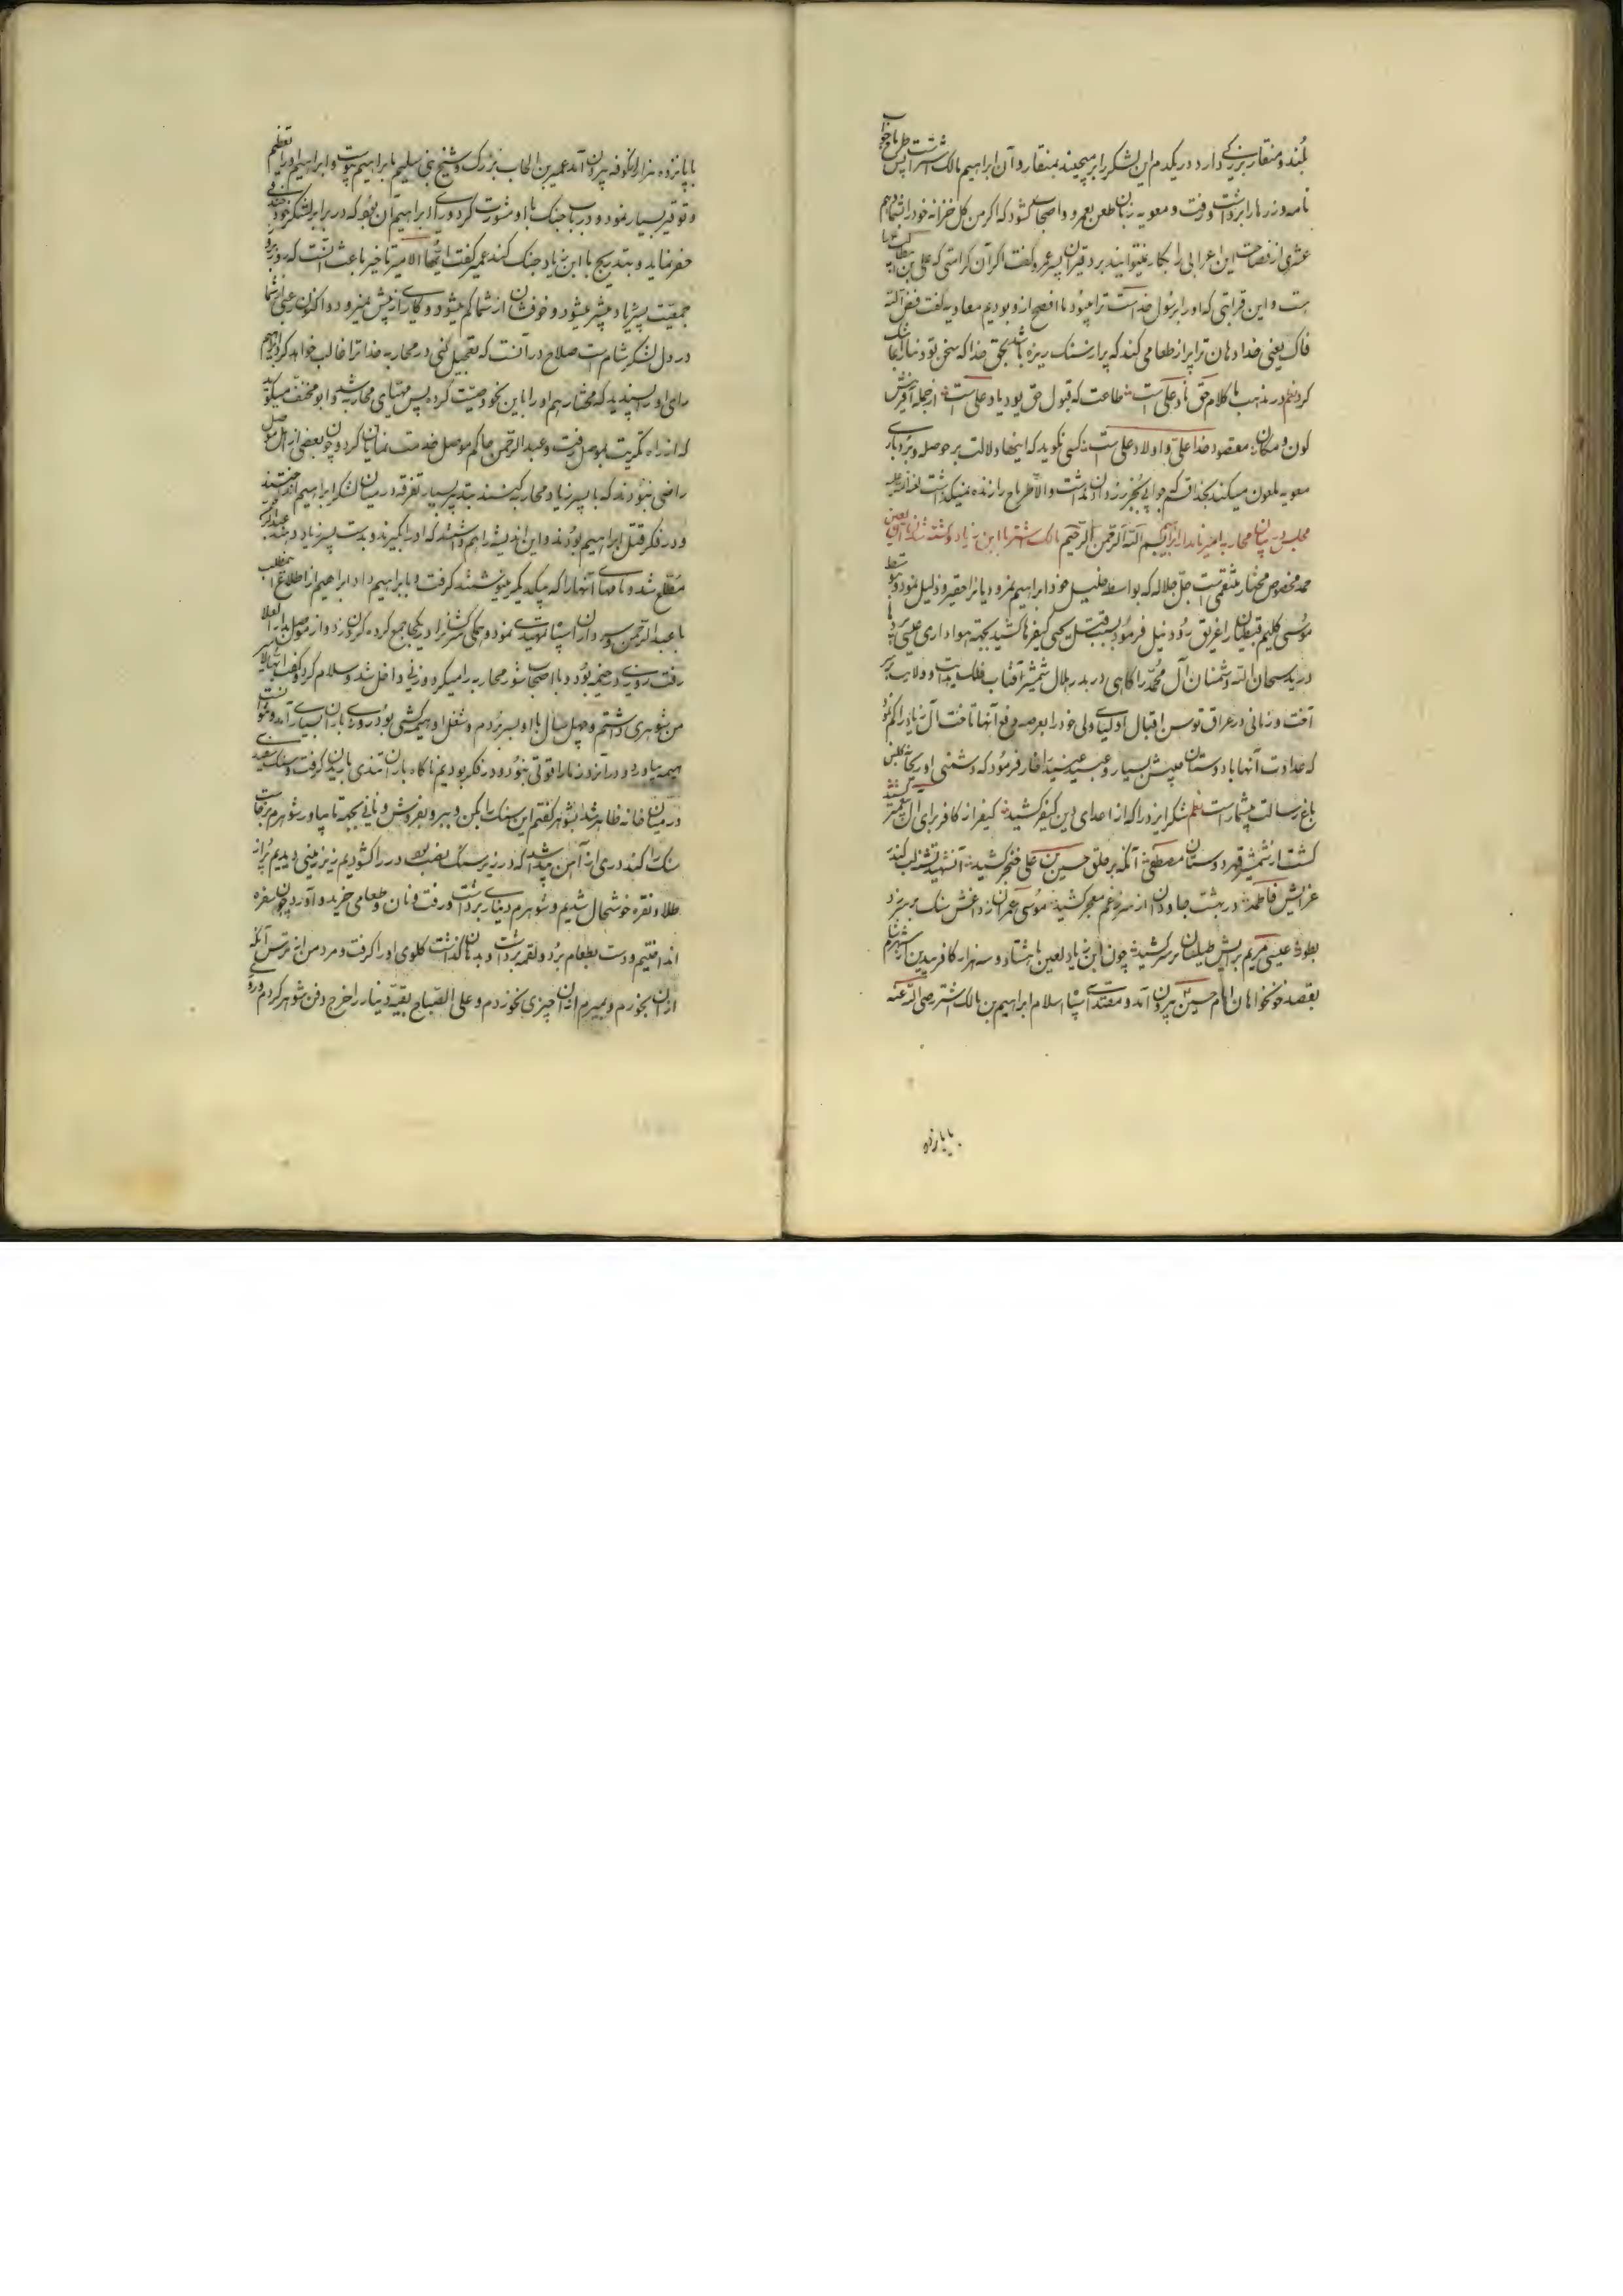 بلند و منقار بزرگی دارد در یکدم این لشکر را برمیچیند بمنقار و آن ابراهیم مالک اشتر است پس طرماح جواب
نامه و زرها را برداشت و رفت و معویه زبان طعن بعمرو و اصحاب کشود که اگر من کل خزانه خود را بشما دهم
عشری از فصاحت این اعرابی را بکار نمیتوانید برد عمرو گفت اگر آن کرامتی که علی بن ابیطالب را
هست و این قرابتی که او را برسول خداست ترا میبود ما افصح از او بودیم معاویه گفت فض الله
فاک یعنی خدا دهان ترا پر از طعامی کند که پر از سنک ریزه باشد بحق خدا که سخن تو دنیا را بما تنک
کرد نظم در مذهب ما کلام حق ناد علی است طاعت که قبول حق بود یاد علی است از جمله آفرینش
کون و مکان مقصود خدا علی و اولاد علی است کسی نگوید که اینها دلالت بر حوصله و بردباری
معویه ملعون میکند بخدا قسم جوابی بجز زر دادن نداشت والا طرماح را زنده نمیگذاشت لعنة الله علیه
مجلس در بیان محاربه امیر نامدار ابراهیم بسم الله الرحمن الرحیم مالک اشتر با ابن زیاد و کشته شدن آن لعین
حمد مخصوص مختار منتقمی است جل جلاله که بواسطه خلیل خود ابراهیم نمرودیانرا حقیر و ذلیل نمود و بتوسط
موسی کلیم قبطیان را غریق رود نیل فرمود بسبب قتل یحیی کیفرها کشید بجهة هواداری عیسی
درید سبحان الله دشمنان آل محمد را گاهی در بدر بهلال شمشیر آفتاب فلک هدایت و ولایت سر
آفت و زمانی در عراق توسن اقبال اولیای ولی خود را بعرصه دفع آنها تاخت آل زیاد را کم نمود
که عداوت آنها با دوستان بیش بسیار و عبید
باغ رسالت بیشمار است نظم شکر ایزد را که از اعدای دین کیفر کشید کیفر از کافر برای آل پیغمبر کشید
کشت از شمشیر قهر دوستان مصطفی آنکه بر حلق حسین بن علی خنجر کشید آنشهید تشنه لب کند
عزایش فاطمه در بهشت جاودان از سر ز غم معجر کشید موسی عمران ز داغش سنک بر سر زد
بطور عیسی مریم برایش طیلسان بر سر کشید چون ابن زیاد لعین با هشتاد و سه هزار کافر بیدین از شهر شام
بقصد خونخواهان امام حسین بیرون آمد و مقتدای سپاه اسلام ابراهیم بن مالک اشتر رضی الله عنه
با پانزده
با پانزده هزار از کوفه بیرون آمد عمیر بن الحباب بزرک و شیخ بنی سلیم بابراهیم پیوست و ابراهیم او را تعظیم
و توقیر بسیار نمود و در باب جنک با او مشورت کرد و رای ابراهیم آن بود که در برابر لشکر خود خندقی
حفر نماید و بتدریج با ابن زیاد جنک کند عمیر گفت ایها الامیر تاخیر باعث آنست که روز بروز
جمعیت پسر زیاد بیشتر میشود و خوفشان از شما کم میشود و کاری از پیش نمیرود و اکنون رعبی از شما
در دل لشکر شام هست صلاح در آنست که تعجیل کنی در محاربه خدا ترا غالب خواهد کرد ابراهیم
رای او پسندید که مختار هم او را باین نحو وصیت کرده پس مهیای محاربه شد و ابو مخنف میگوید
که از راه تکریت بموصل رفت و عبدالرحمن حاکم موصل خدمت نمایان کرد و چون بعضی از اهل موصل
راضی نبودند که با پسر زیاد محاربه کنند بتدبیر بسیار تفرقه در میان لشکر ابراهیم انداختند
و در فکر قتل ابراهیم بودند و این اندیشه را هم داشتند که او را بگیرند و بدست پسر زیاد دهند عبدالرحمن
مطلع شد و نامهای آنها را که بیکدیگر مینوشتند گرفت و بابراهیم داد ابراهیم از اطلاع مطلب
با عبدالرحمن سرداران سپاه نمود و جملگی سرکشانرا در یکجا جمع کرده گردن زد و از موصل بدارالعلا
رفت روزی در خیمه بود و با اصحاب شور محاربه را میکرد و زنی داخل شد و سلام کرد و گفت ایها الامیر
من شوهری داشتم و چهل سال با او بسر بردم و شغل او هیمه کشی بود روزی باران بسیاری آمد و نتوانست
هیمه بیاورد و در انروز ما را قوتی نبود و در فکر بودیم ناگاه باران تندی باریدن گرفت و سنک سفیدی
در میان خانه ظاهر شد بشوهر گفتم این سنک را بکن و ببر و بفروش و نانی بجهة ما بیاور شوهرم برخاست
سنک را کند دری از آهن پیدا شد که در زیر سنک نصب بود در را کشودیم زیر زمینی دیدیم پر از
طلا و نقره خوشحال شدیم و شوهرم دیناری برداشت و رفت و نان و طعامی خرید و آورد چون سفره
انداختیم و دست بطعام برد و لقمه برداشت و بدهان گذاشت گلوی او را گرفت و مرد من از ترس آنکه
از ان بخورم و بمیرم از ان چیزی نخوردم و علی الصباح بقیه دینار را خرج دفن شوهر کردم و روزی